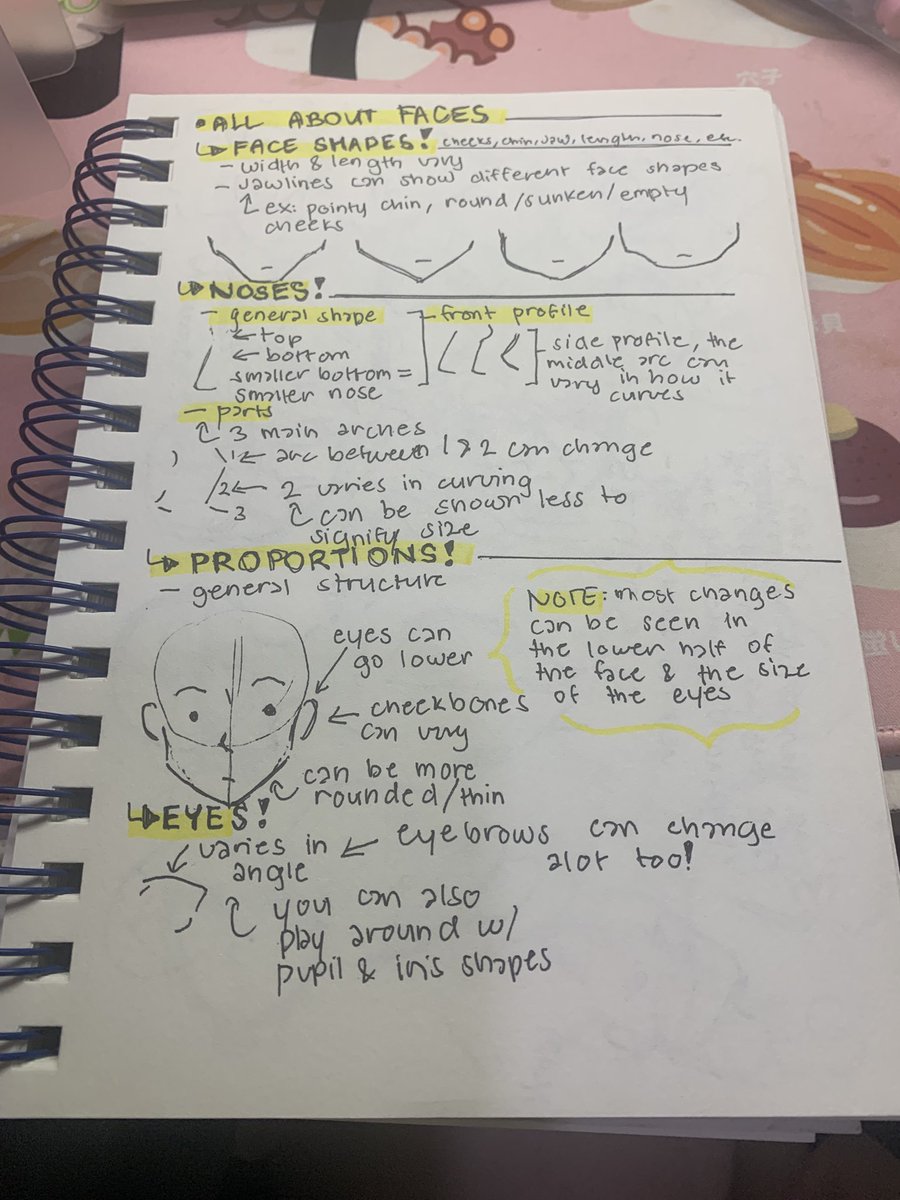 • ALL ABOUT FACES
FACE SHAPES! cheeks, chin, jaw, length, nose, etc.
- width & length vary
- Jawlines can show different face shapes
ex: pointy chin, round/sunken/empty
cheeks
NOSES!
- general shape
top
bottom
smaller bottom =
smaller nose
- front profile
side profile, the
middle arc can
vary in how it
curves
- parts
3 main arches
1 arc between 1 & 2 can change
2 2 varies in curving
3 can be shown less to
signify size
PROPORTIONS!
- general structure
eyes can
go lower
cheekbones
can vary
can be more
rounded/thin
NOTE: most changes
can be seen in
the lower half of
the face & the size
of the eyes
EYES!
varies in
angle
eyebrows can change
alot too!
you can also
play around w/
pupil & iris shapes
穴子